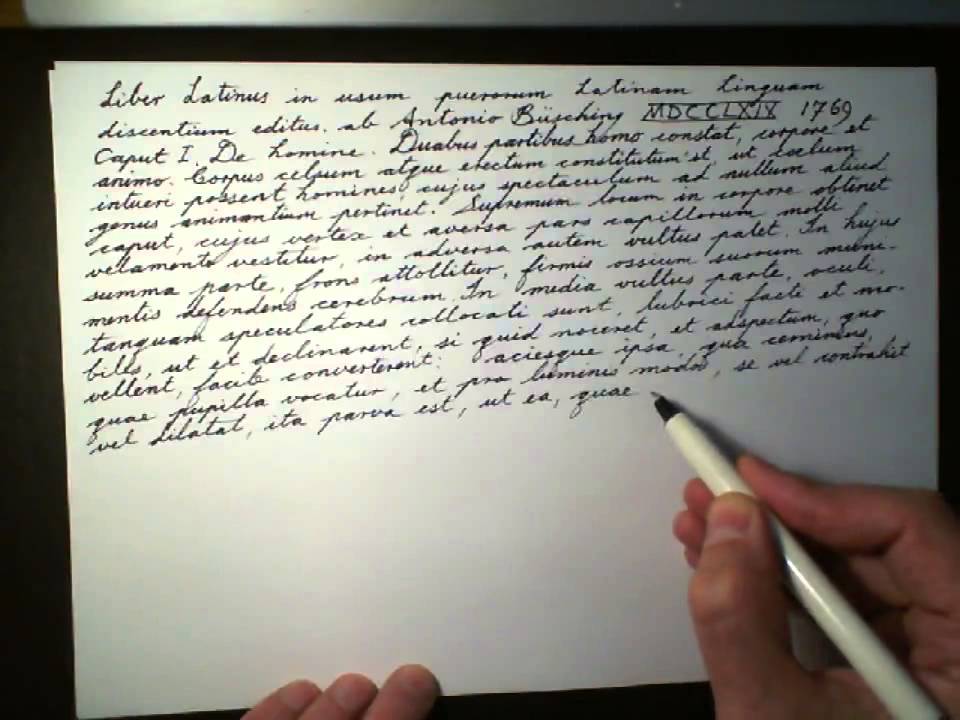 Liber Latinus in usum puerorum Latinam Linguam
discentium editus. ab Antonio Büsching MDCCLXIX 1769
Caput I. De homine. Duabus partibus homo constat, corpore et
animo. Corpus celsum atque erectum constitutum est, ut coelum
intueri possent homines, cujus spectaculum ad nullum aliud
genus animantium pertinet. Supremum locum in corpore obtinet
caput, cujus vertex et aversa pars capillorum molli
velamento vestitur, in adversa autem vultus patet. In hujus
summa parte, frons attollitur, firmis ossium suorum muni-
mentis defendens cerebrum. In media vultus parte, oculi,
tanquam speculatores collocati sunt, lubrici facti et mo-
biles, ut et declinarent, si quid noceret, et adspectum, quo
vellent, facile converterent: aciesque ipsa, qua cernimus,
quae pupilla vocatur, et pro luminis modo, se vel contrahit
vel dilatat, ita parva est, ut ea, quae